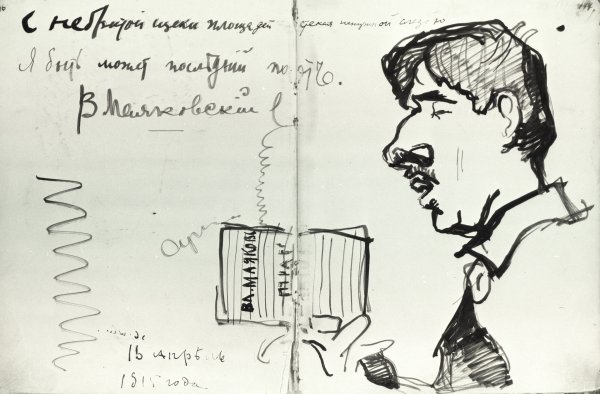 С небритой щеки площадей стекая ненужной слезою
Я быть может последний поэтъ.
В Маяковскій
ВЛ. МАЯКОВС
18 апрѣля
1915 года.